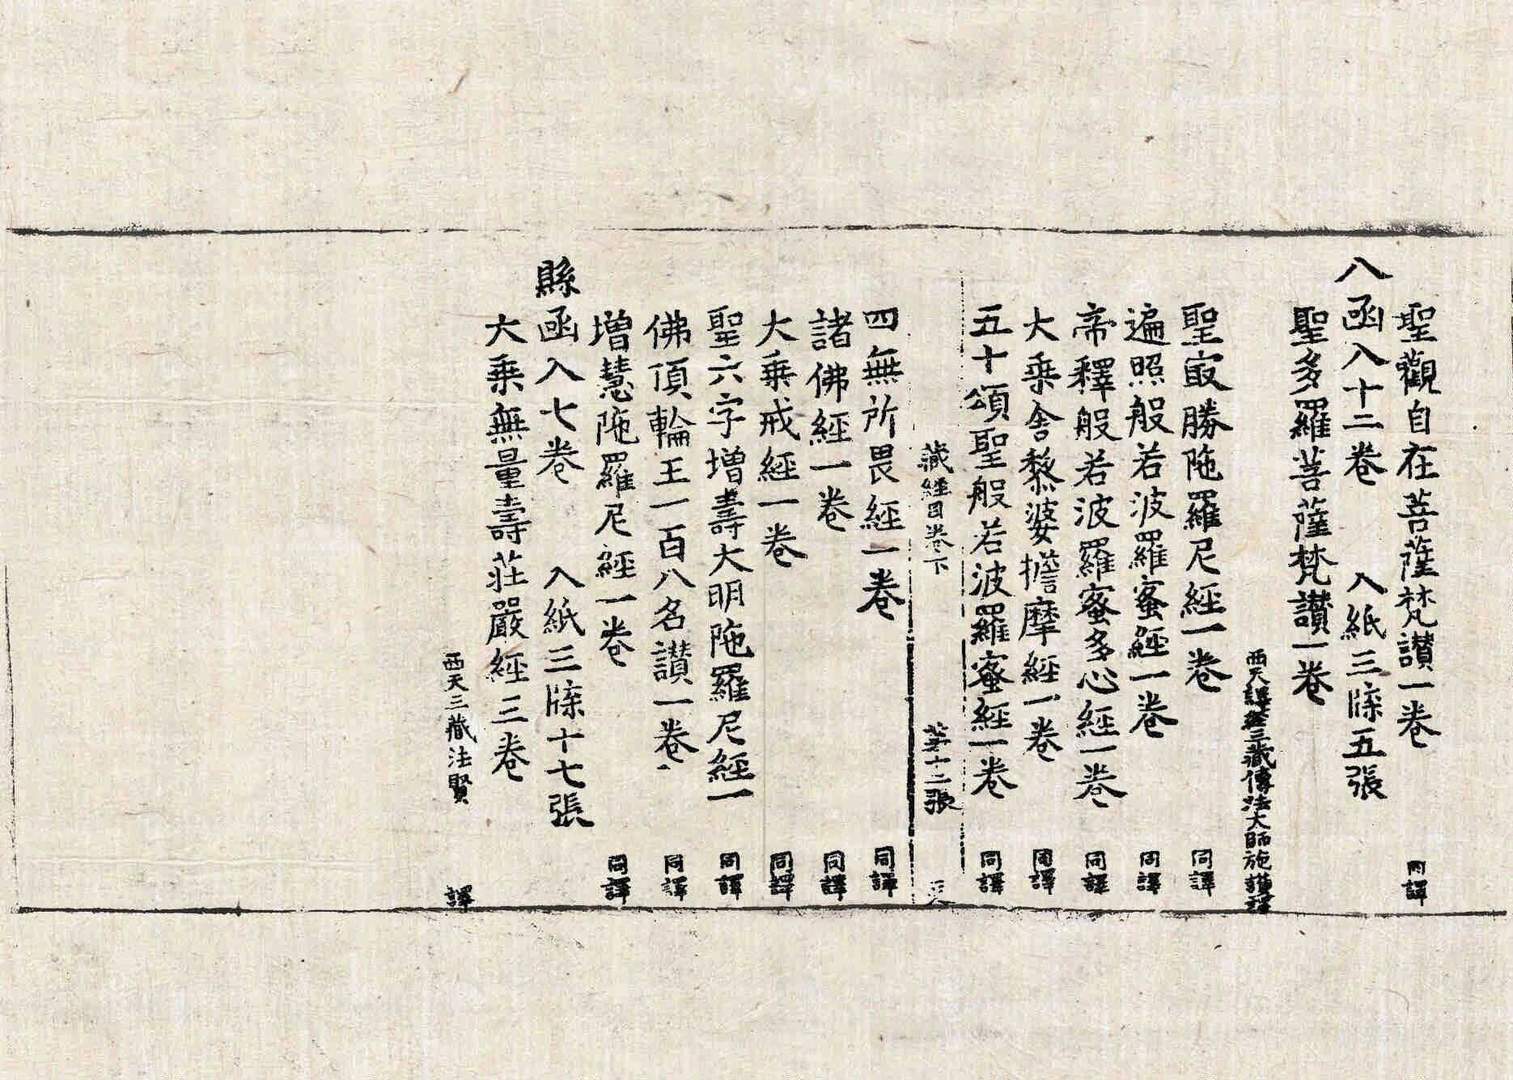 聖觀自在菩薩梵讃一卷 同譯
八函入十二卷 入紙三牒五張
聖多羅菩薩梵讃一卷
西天譯經三藏傳法大師施護譯
聖㝡勝陁羅尼經一卷 同譯
遍照般若波羅蜜經一卷 同譯
帝釋般若波羅蜜多心經一卷 同譯
大乘舍黎婆擔摩經一卷 同譯
五十頌聖般若波羅蜜經一卷 同譯
藏經目卷下 苐十二張
四無所畏經一卷 同譯
諸佛經一卷 同譯
大乘戒經一卷 同譯
聖六字增壽大明陁羅尼經一 同譯
佛頂輪王一百八名讃一卷 同譯
增慧陁羅尼經一卷 同譯
縣函入七卷 入紙三牒十七張
大乘無量壽莊嚴經三卷
西天三藏法賢 譯